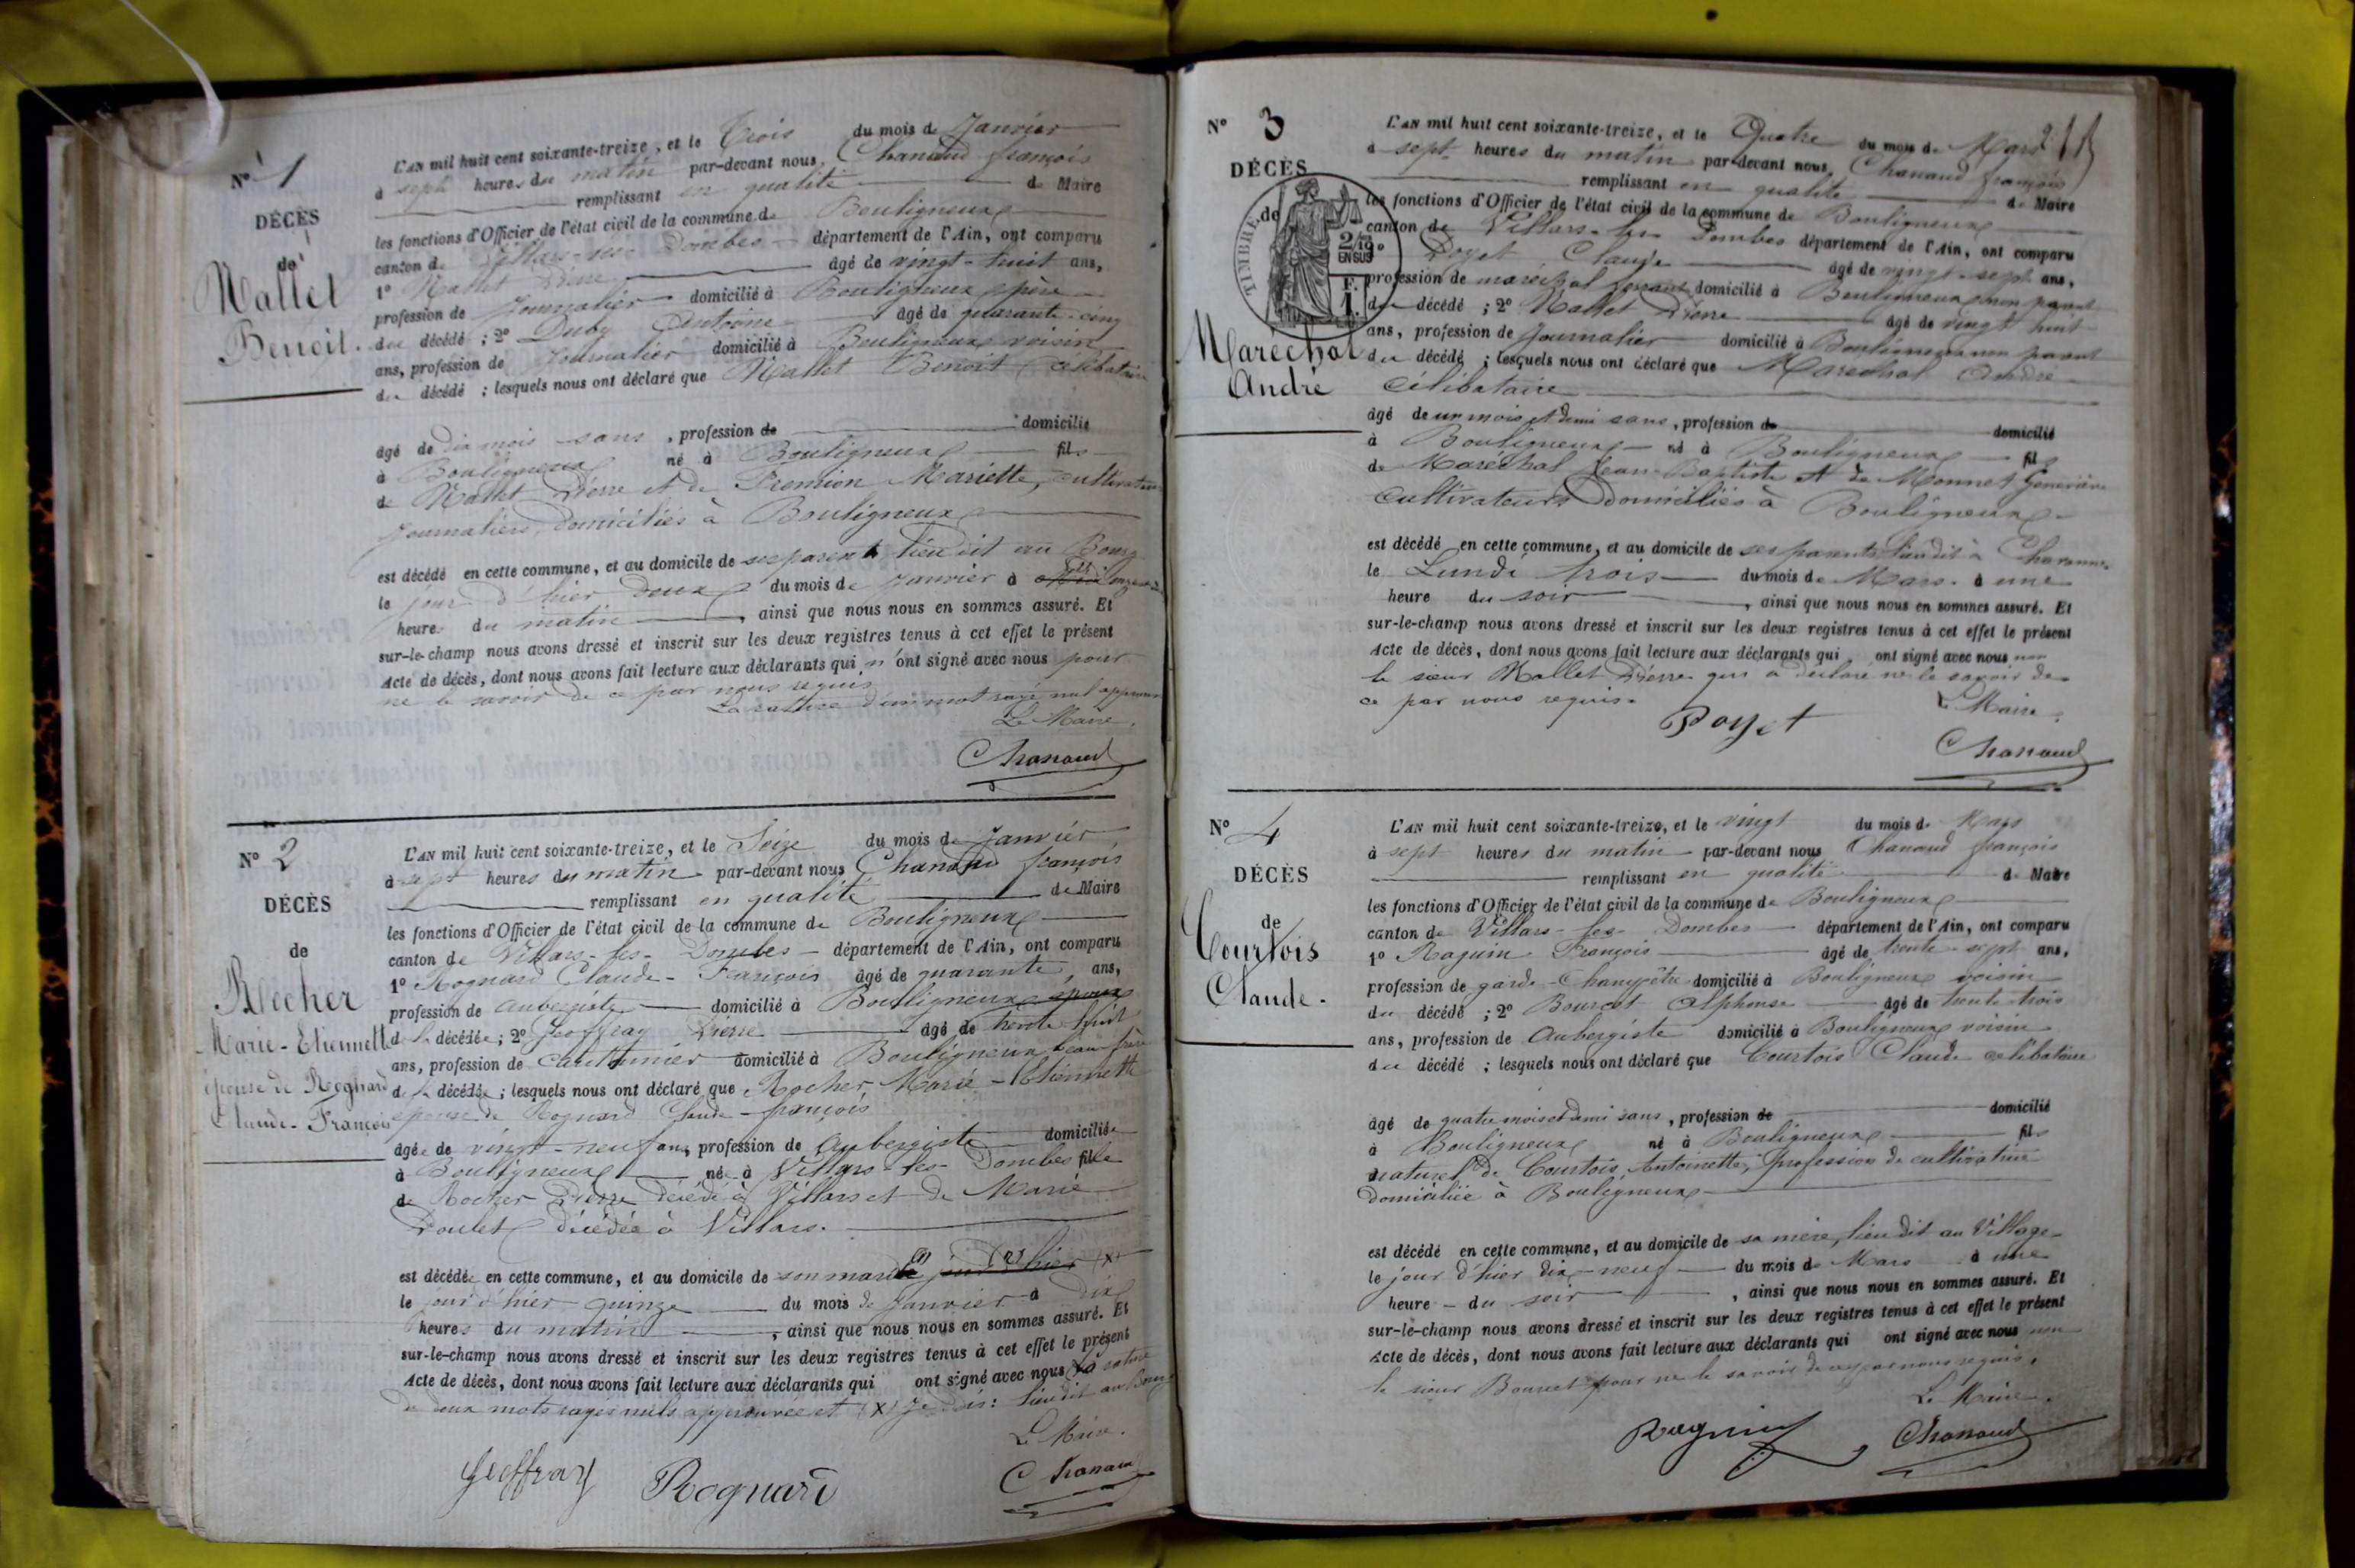 N° 1
DÉCÈS
de
Mallet
Benoit.
L'AN mil huit cent soixante-treize, et le Trois du mois de Janvier
à sept heures du matin par-devant nous, Chanaud françois
remplissant en qualité de Maire
les fonctions d'Officier de l'état civil de la commune de Bouligneux
canton de Villars-les-Dombes département de l'Ain, ont comparu
1° Mallet Pierre âgé de vingt-huit ans,
profession de Journalier domicilié à Bouligneux père
du décédé ; 2° Duby Antoine âgé de quarante-cinq
ans, profession de Journalier domicilié à Bouligneux voisin
du décédé ; lesquels nous ont déclaré que Mallet Benoit célibataire
âgé de dix mois sans, profession de domicilié
à Bouligneux né à Bouligneux fils
de Mallet Pierre et de Mariette, cultivateurs
Journaliers, domiciliés à Bouligneux
est décédé en cette commune, et au domicile de ses parents lieu dit au Bourg
le jour d'hier deux du mois de Janvier à onze
heures du matin, ainsi que nous nous en sommes assuré. Et
sur-le-champ nous avons dressé et inscrit sur les deux registres tenus à cet effet le présent
Acte de décès, dont nous avons fait lecture aux déclarants qui n'ont signé avec nous pour
ne le savoir de ce par nous requis
La rature d'un mot rayé nul approuvée
Le Maire,
Chanaud
N° 2
DÉCÈS
de
Rocher
Marie-Etiennette
épouse de Rognard
Claude-François
L'AN mil huit cent soixante-treize, et le Seize du mois de Janvier
à sept heures du matin par-devant nous Chanaud françois
remplissant en qualité de Maire
les fonctions d'Officier de l'état civil de la commune de Bouligneux
canton de Villars-les-Dombes département de l'Ain, ont comparu
1° Rognard Claude-François âgé de quarante ans,
profession de aubergiste domicilié à Bouligneux époux
de la décédée ; 2° Geoffray Pierre âgé de trente huit
ans, profession de cantonnier domicilié à Bouligneux beau-frère
de la décédée ; lesquels nous ont déclaré que Rocher Marie-Etiennette
épouse de Rognard Claude-françois
âgée de vingt-neuf ans, profession de Aubergiste domiciliée
à Bouligneux née à Villars-les-Dombes fille
de Rocher Pierre décédé à Villars et de Marie
Poulet décédée à Villars.
est décédée en cette commune, et au domicile de son mari jour d'hier (X)
le jour d'hier quinze du mois de Janvier à dix
heures du matin, ainsi que nous nous en sommes assuré. Et
sur-le-champ nous avons dressé et inscrit sur les deux registres tenus à cet effet le présent
Acte de décès, dont nous avons fait lecture aux déclarants qui ont signé avec nous La rature
de deux mots rayés nuls approuvée et (X) Je dis : lieu dit au Bourg
Le Maire.
Geoffray Rognard Chanaud
N° 3
DÉCÈS
de
TIMBRE
2/10
EN SUS
F.
1.
Maréchal
André
215
L'AN mil huit cent soixante-treize, et le Quatre du mois de Mars
à sept heures du matin par-devant nous, Chanaud françois
remplissant en qualité de Maire
les fonctions d'Officier de l'état civil de la commune de Bouligneux
canton de Villars-les-Dombes département de l'Ain, ont comparu
1° Poyet Claude âgé de vingt-sept ans,
profession de maréchal ferrant domicilié à Bouligneux non parent
du décédé ; 2° Mallet Pierre âgé de vingt huit
ans, profession de Journalier domicilié à Bouligneux non parent
du décédé ; lesquels nous ont déclaré que Maréchal André
Célibataire
âgé de un mois et demi sans, profession de domicilié
à Bouligneux né à Bouligneux fils
de Maréchal Jean-Baptiste et de Monnet Geneviève
Cultivateurs domiciliés à Bouligneux
est décédé en cette commune, et au domicile de ses parents lieu dit à
le Lundi trois du mois de Mars à une
heure du soir, ainsi que nous nous en sommes assuré. Et
sur-le-champ nous avons dressé et inscrit sur les deux registres tenus à cet effet le présent
Acte de décès, dont nous avons fait lecture aux déclarants qui ont signé avec nous non
le sieur Mallet Pierre qui a déclaré ne le savoir de
ce par nous requis.
Le Maire,
Poyet
Chanaud
N° 4
DÉCÈS
de
Courtois
Claude.
L'AN mil huit cent soixante-treize, et le vingt du mois de Mars
à sept heures du matin par-devant nous Chanaud françois
remplissant en qualité de Maire
les fonctions d'Officier de l'état civil de la commune de Bouligneux
canton de Villars-les-Dombes département de l'Ain, ont comparu
1° Raguin François âgé de trente-sept ans,
profession de garde-Champêtre domicilié à Bouligneux voisin
du décédé ; 2° Bourcet Alphonse âgé de trente trois
ans, profession de Aubergiste domicilié à Bouligneux voisin
du décédé ; lesquels nous ont déclaré que Courtois Claude célibataire
âgé de quatre mois et demi sans, profession de domicilié
à Bouligneux né à Bouligneux fils
naturel de Courtois Antoinette, profession de cultivatrice
domiciliée à Bouligneux
est décédé en cette commune, et au domicile de sa mère, lieu dit au Village
le jour d'hier dix-neuf du mois de Mars à une
heure du soir, ainsi que nous nous en sommes assuré. Et
sur-le-champ nous avons dressé et inscrit sur les deux registres tenus à cet effet le présent
Acte de décès, dont nous avons fait lecture aux déclarants qui ont signé avec nous non
le sieur Bourcet pour ne le savoir de ce par nous requis.
Le Maire.
Raguin Chanaud